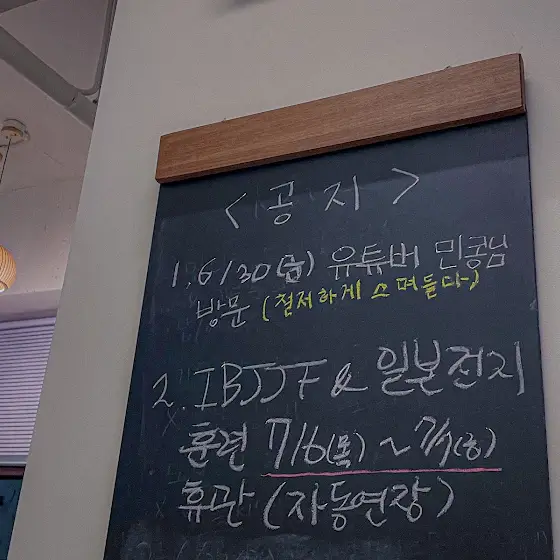 <공지>
1. 6/30(금) 유튜버 민쿵님
방문 (철저하게 스며들다)
2. IBJJF & 일본전지
훈련 7/6(목) ~ 7/9(일)
휴관 (자동연장)